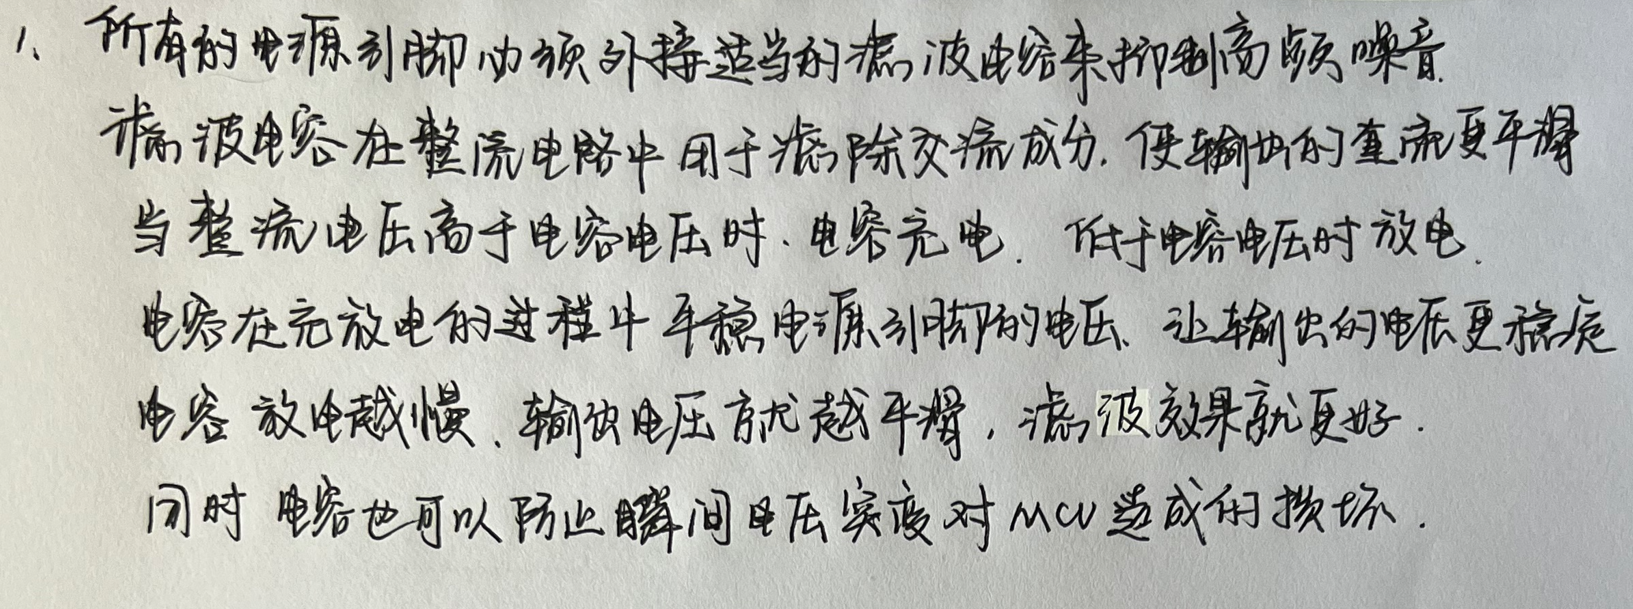 1、所有的电源引脚必须外接适当的滤波电容来抑制高频噪音.
滤波电容在整流电路中用于滤除交流成分.使输出的直流更平滑
当整流电压高于电容电压时.电容充电.低于电容电压时放电.
电容在充放电的过程中平稳电源引脚的电压、让输出的电压更稳定
电容放电越慢、输出电压就越平滑,滤波效果就更好.
同时电容也可以防止瞬间电压突变对MCU造成的损坏.